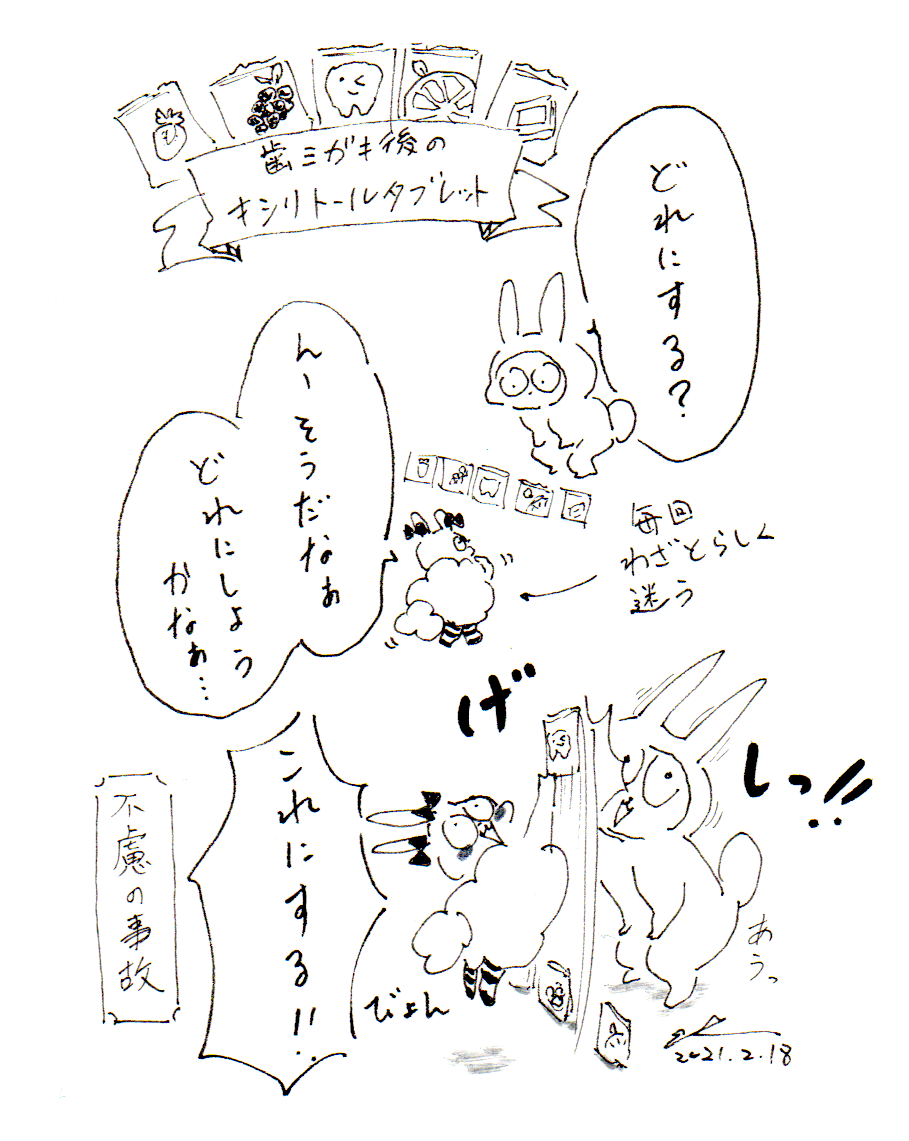 歯ミガキ後の
キシリトールタブレット
どれにする?
んーそうだなぁ
どれにしよう
かなぁ…
毎回
わざとらしく
迷う
げ
しっ!!
これにする!!
びょん
あうっ
不慮の事故
2021.2.18